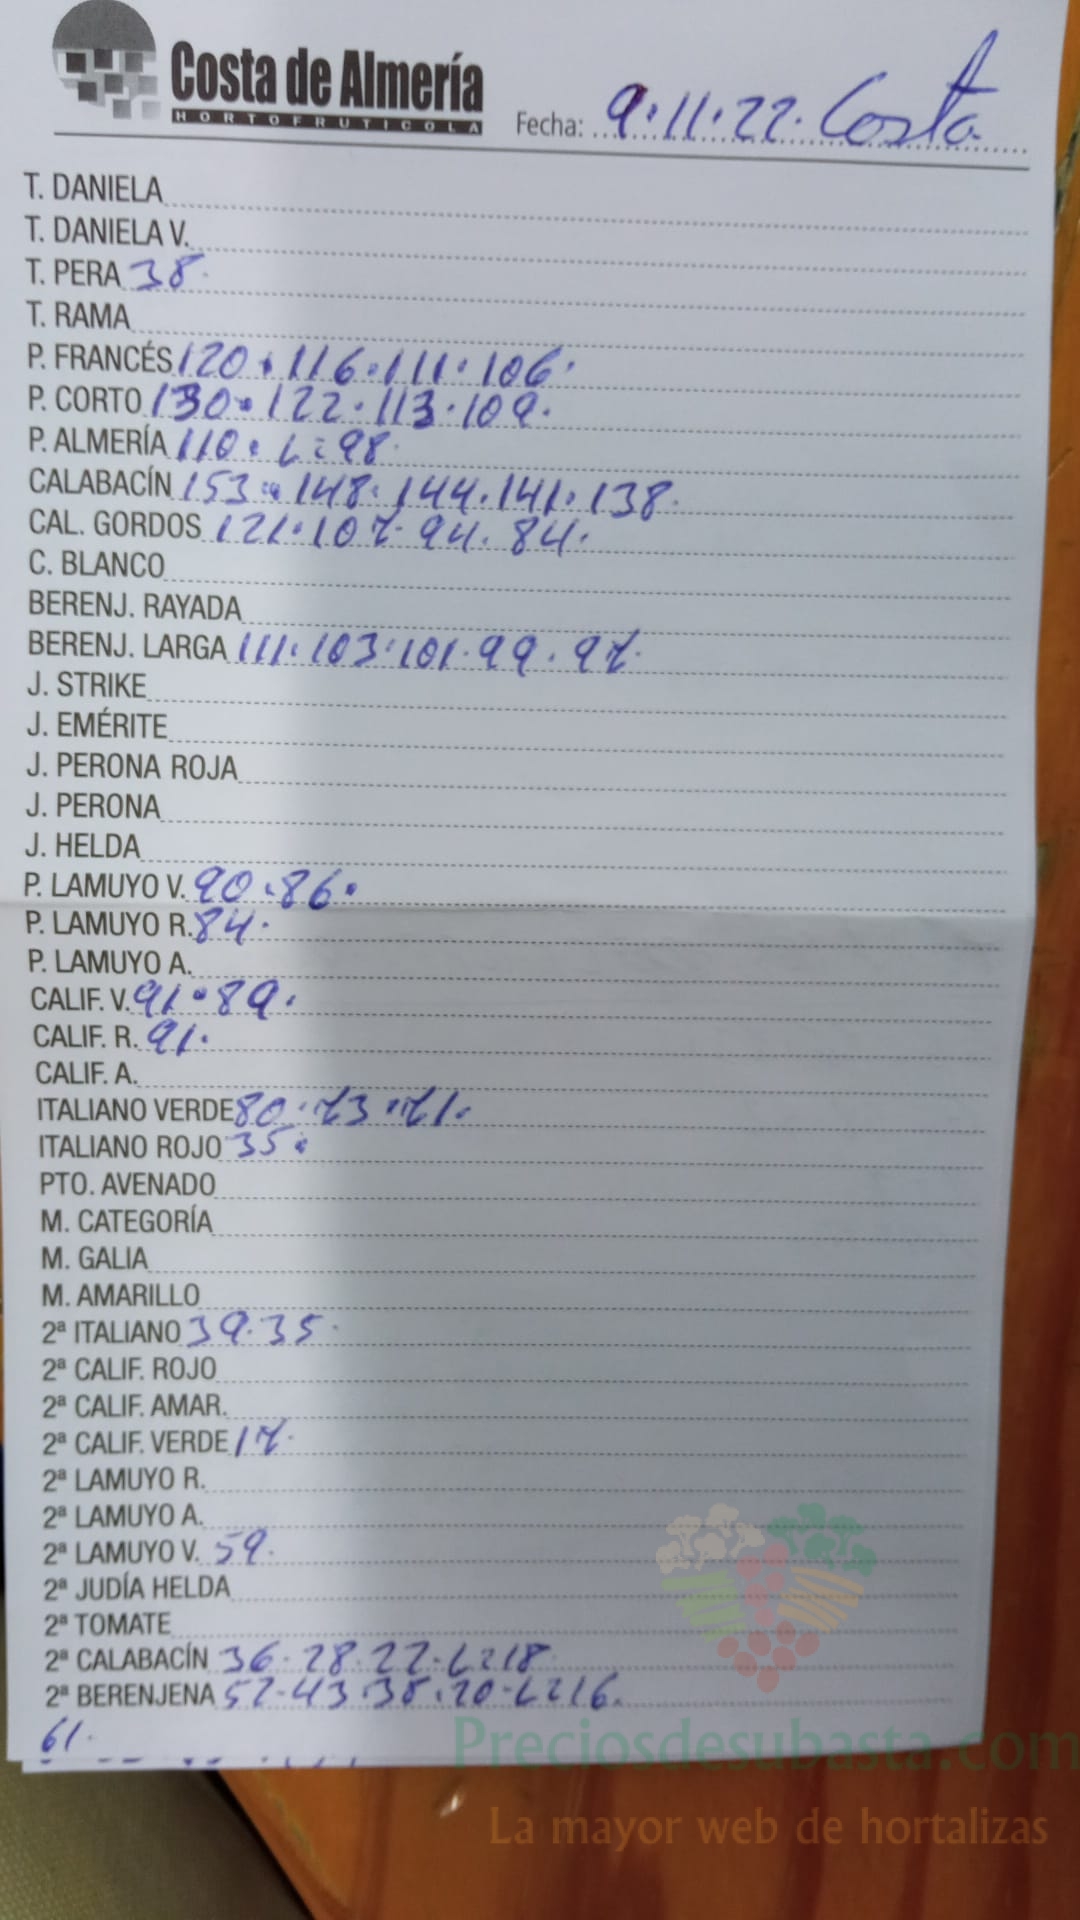 Costa de Almería
HORTOFRUTICOLA
Fecha: 9.11.22. Costa
T. DANIELA
T. DANIELA V.
T. PERA 38.
T. RAMA
P. FRANCÉS 120.116.111.106.
P. CORTO 130.122.113.109.
P. ALMERÍA 110. L=98.
CALABACÍN 153.148.144.141.138.
CAL. GORDOS 121.107.94.84.
C. BLANCO
BERENJ. RAYADA
BERENJ. LARGA 111.103.101.99.97.
J. STRIKE
J. EMÉRITE
J. PERONA ROJA
J. PERONA
J. HELDA
P. LAMUYO V. 90.86.
P. LAMUYO R. 84.
P. LAMUYO A.
CALIF. V. 91.89.
CALIF. R. 91.
CALIF. A.
ITALIANO VERDE 80.73.71.
ITALIANO ROJO 35.
PTO. AVENADO
M. CATEGORÍA
M. GALIA
M. AMARILLO
2ª ITALIANO 39.35.
2ª CALIF. ROJO
2ª CALIF. AMAR.
2ª CALIF. VERDE 17.
2ª LAMUYO R.
2ª LAMUYO A.
2ª LAMUYO V. 59.
2ª JUDÍA HELDA
2ª TOMATE
2ª CALABACÍN 36.28.22.L=18.
2ª BERENJENA 52.43.38.20.L=16.
61.
Preciosdesubasta.com
La mayor web de hortalizas